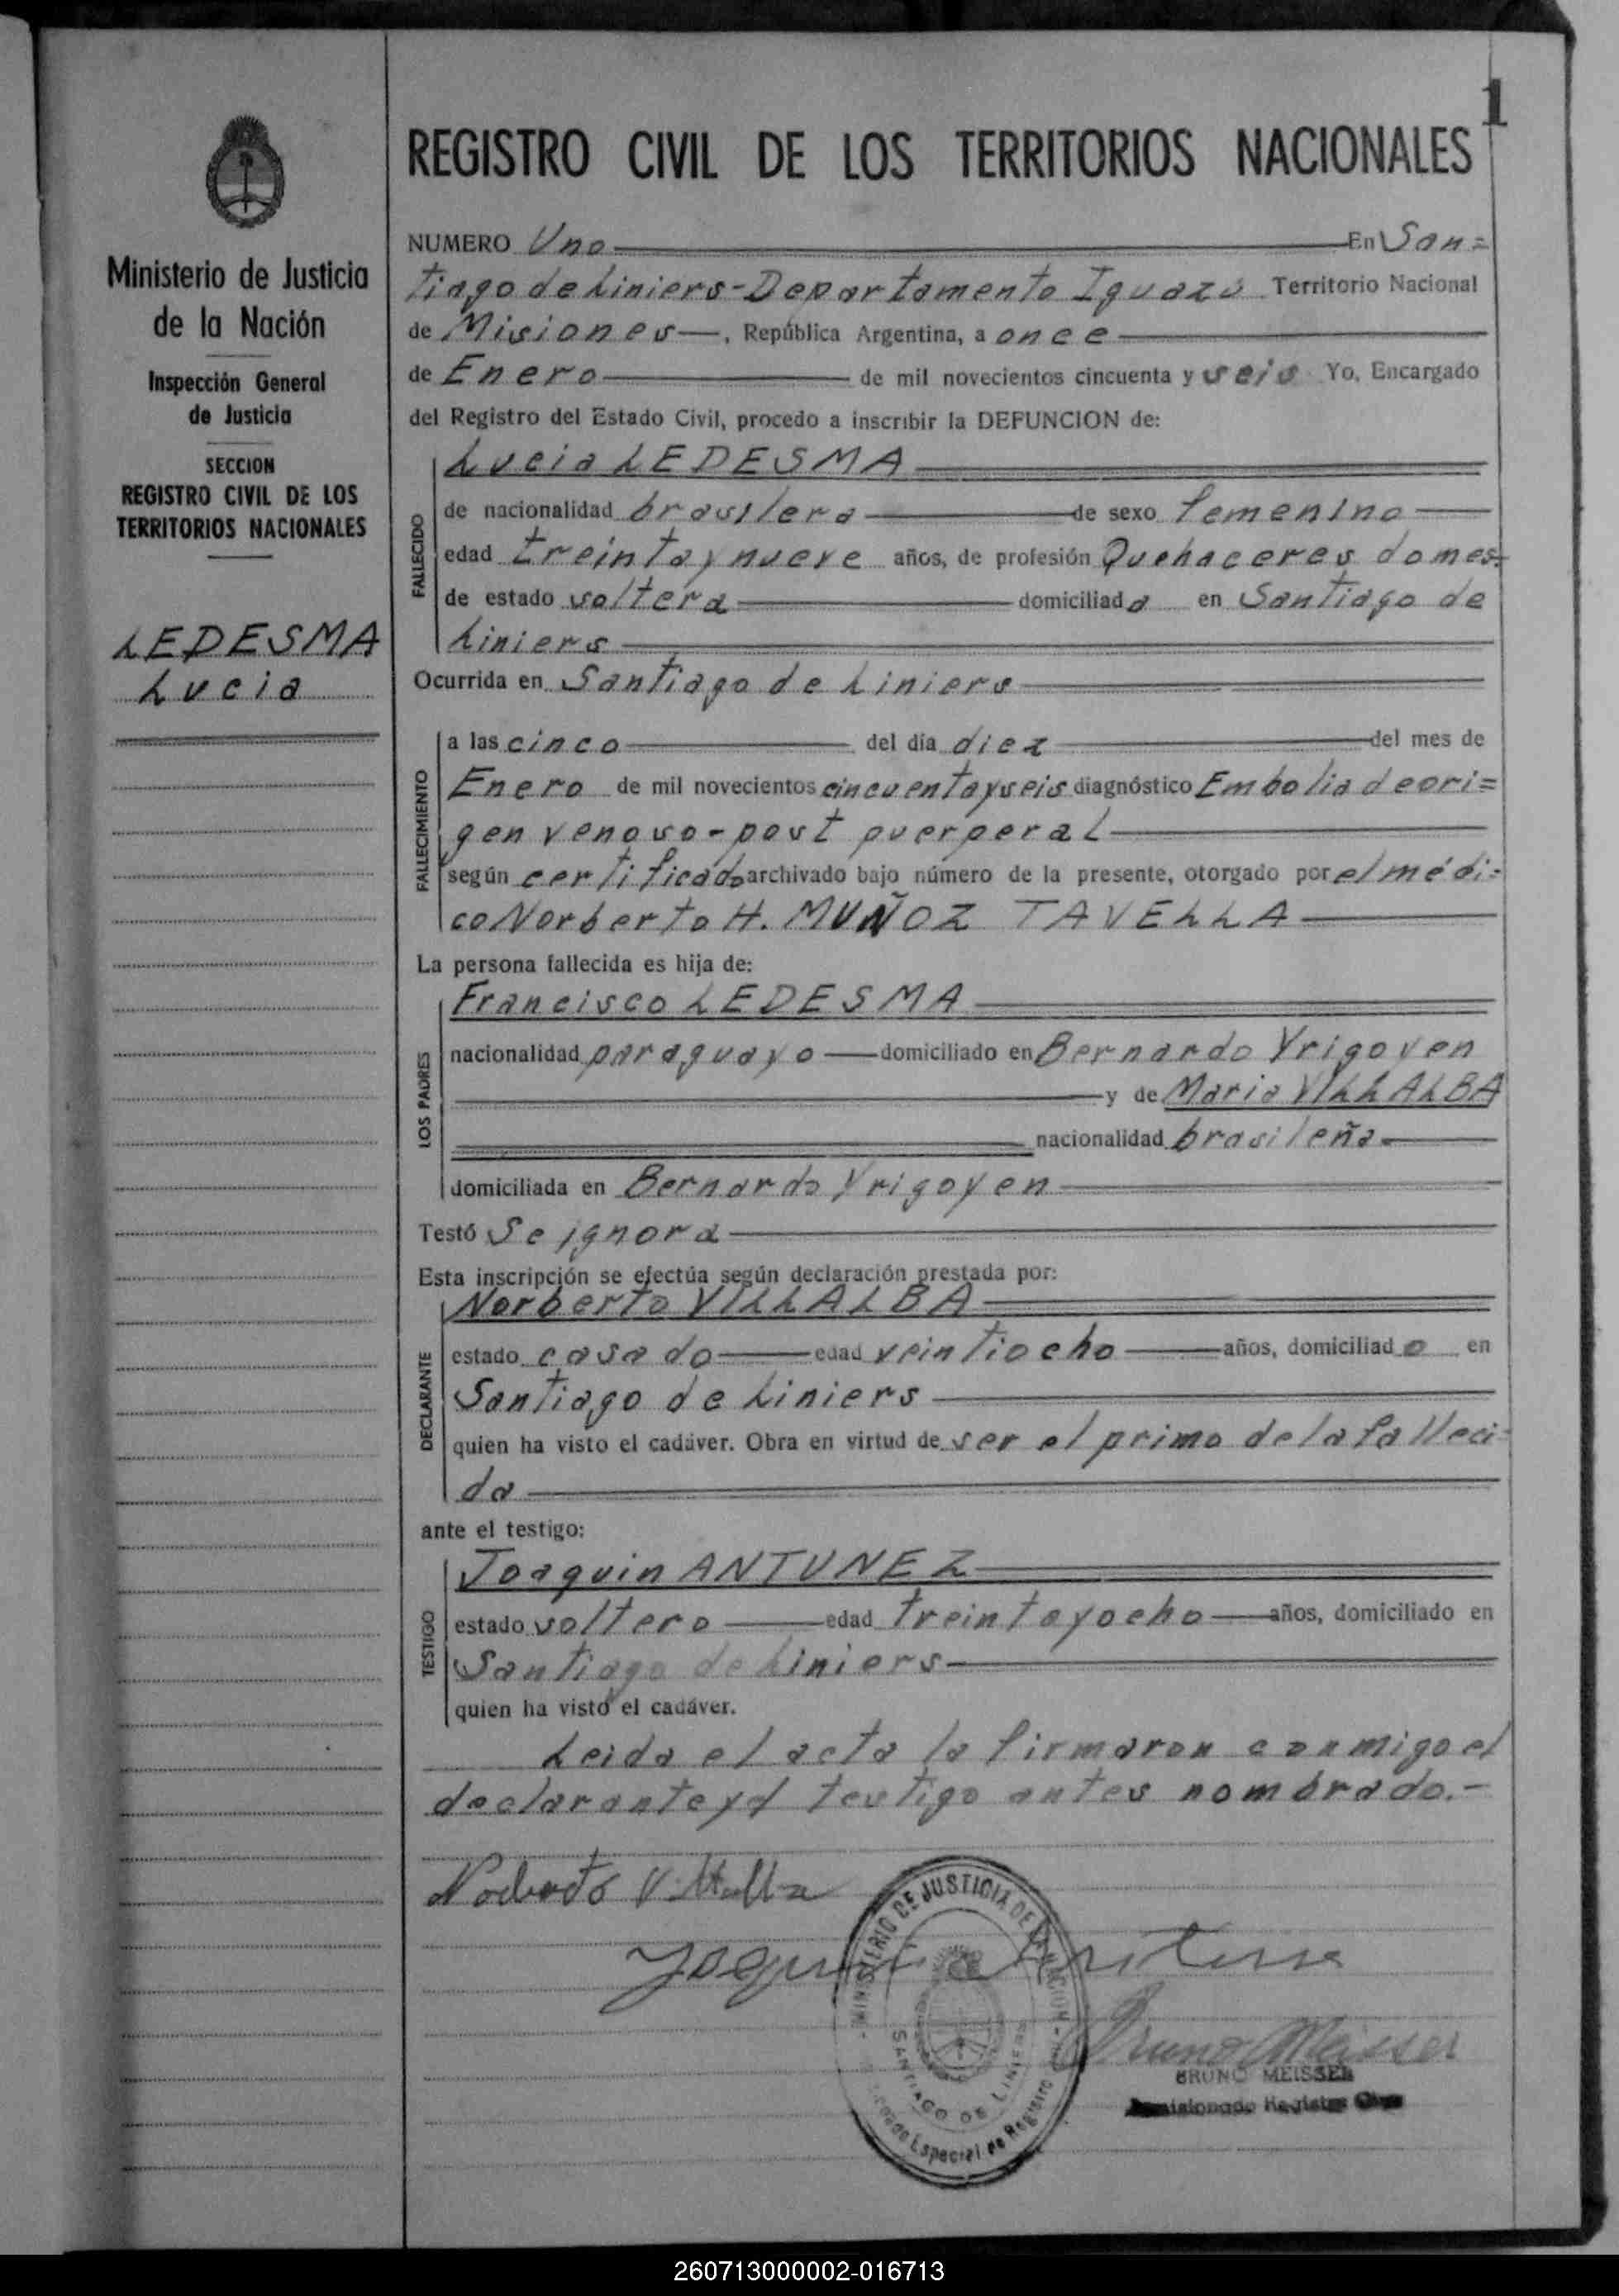 1
REGISTRO CIVIL DE LOS TERRITORIOS NACIONALES
Ministerio de Justicia
de la Nación
Inspección General
de Justicia
SECCION
REGISTRO CIVIL DE LOS
TERRITORIOS NACIONALES
LEDESMA
Lucia
NUMERO Uno En San=
tiago de Liniers-Departamento Iguazú Territorio Nacional
de Misiones, República Argentina, a once
de Enero de mil novecientos cincuenta y seis Yo, Encargado
del Registro del Estado Civil, procedo a inscribir la DEFUNCION de:
Lucia LEDESMA
FALLECIDO
de nacionalidad brasilera de sexo femenino
edad treinta y nueve años, de profesión Quehaceres domes=
de estado soltera domiciliada en Santiago de
Liniers
Ocurrida en Santiago de Liniers
FALLECIMIENTO
a las cinco del día diez del mes de
Enero de mil novecientos cincuenta y seis diagnóstico Embolia de ori=
gen venoso-post puerperal
según certificado archivado bajo número de la presente, otorgado por el médi=
co Norberto H. MUÑOZ TAVELLA
La persona fallecida es hija de:
LOS PADRES
Francisco LEDESMA
nacionalidad paraguayo domiciliado en Bernardo Yrigoyen
y de Maria VILLALBA
nacionalidad brasileña
domiciliada en Bernardo Yrigoyen
Testó Se ignora
Esta inscripción se efectúa según declaración prestada por:
DECLARANTE
Norberto VILLALBA
estado casado edad veintiocho años, domiciliado en
Santiago de Liniers
quien ha visto el cadáver. Obra en virtud de ser el primo de la falleci=
da
ante el testigo:
TESTIGO
Joaquin ANTUNEZ
estado soltero edad treinta y ocho años, domiciliado en
Santiago de Liniers
quien ha visto el cadáver.
Leida el acta la firmaron conmigo el
declarante y el testigo antes nombrado.-
MINISTERIO DE JUSTICIA DE LA NACION
SANTIAGO DE LINIERS
Especial de Registro
Bruno Meisser
BRUNO MEISSER
260713000002-016713